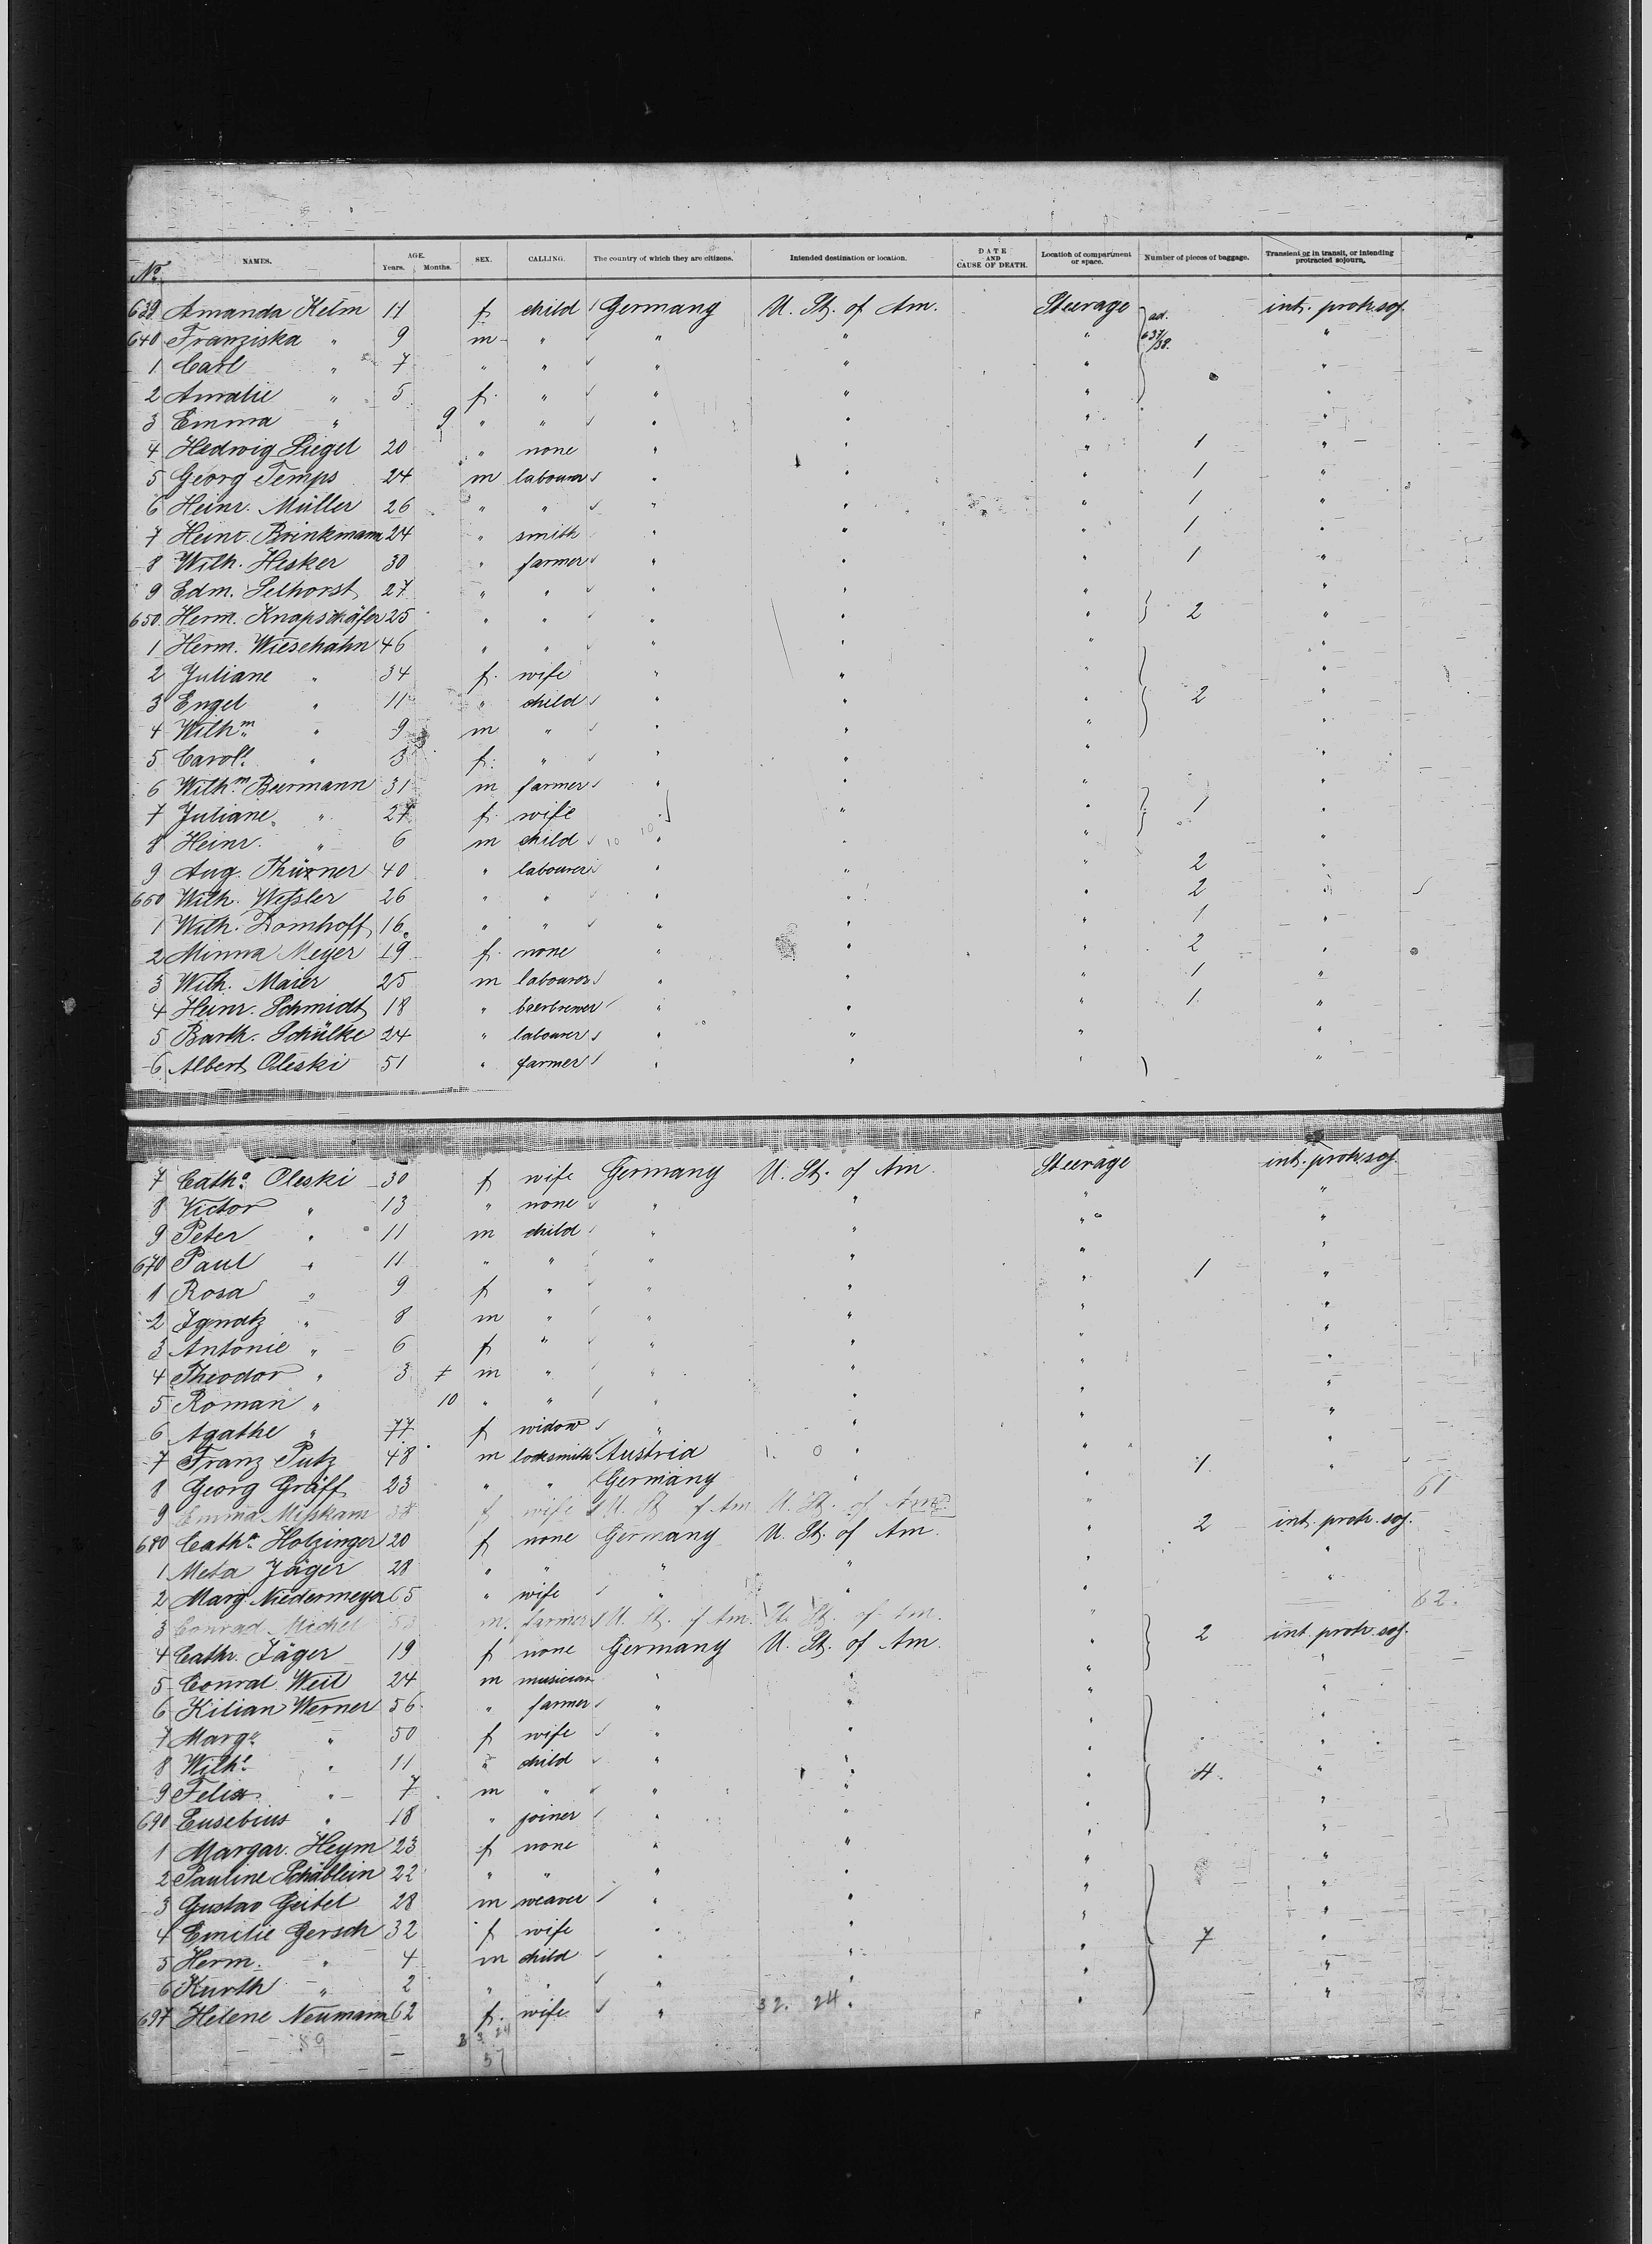 No. NAMES. AGE. Years. Months. SEX. CALLING. The country of which they are citizens. Intended destination or location. DATE AND CAUSE OF DEATH. Location of compartment or space. Number of pieces of baggage. Transient or in transit, or intending protracted sojourn.
639 Amanda Kelm 11 f child Germany U. St. of Am. Steerage ad. 637/38. int. protr. soj.
640 Franziska " 9 m " " " " "
1 Carl " 7 " " " " " "
2 Amalie " 5 f. " " " " "
3 Emma " 9 " " " " " "
4 Hedwig Siegel 20 " none " " " 1 "
5 Georg Temps 24 m labourer " " " 1 "
6 Heinr. Müller 26 " " " " " 1 "
7 Heinr. Brinkmann 24 " smith " " " 1 "
8 Wilh. Hesker 30 " farmer " " " 1 "
9 Edm. Selhorst 27 " " " " " "
650 Herm. Knapschäfer 25 " " " " " 2 "
1 Herm. Wiesehahn 46 " " " " " "
2 Juliane " 34 f. wife " " " "
3 Engel " 11 " child " " " 2 "
4 Wilhm " 9 m " " " " "
5 Carol. " 3 f. " " " " "
6 Wilhm Buermann 31 m farmer " " " "
7 Juliane " 27 f. wife " " 1 "
8 Heinr. " 6 m child 10 10 " " " "
9 Aug. Thürner 40 " labourer " " " 2 "
660 Wilh. Weßler 26 " " " " " 2 "
1 Wilh. Domhoff 16 " " " " " 1 "
2 Minna Meyer 19 f. none " " " 2 "
3 Wilh. Maier 25 m labourer " " " 1 "
4 Heinr. Schmidt 18 " beerbrewer " " " 1 "
5 Barth. Schülke 24 " labourer " " " "
6 Albert Oleski 51 " farmer " " " "
7 Catha. Oleski 30 f wife Germany U. St. of Am. Steerage int. protr. soj.
8 Victor " 13 " none " " " "
9 Peter " 11 m child " " " "
670 Paul " 11 " " " " " 1 "
1 Rosa " 9 f " " " " "
2 Ignatz " 8 m " " " " "
3 Antonie " 6 f " " " " "
4 Theodor " 3 m " " " " "
5 Roman " 10 " " " " "
6 Agathe " 77 f widow " " " "
7 Franz Putz 48 m locksmith Austria " " 1 "
8 Georg Gräff 23 " " Germany " " 61
9 Emma 38 f wife U. St. of Am. U. St. of Am. "
680 Catha. Holzinger 20 f none Germany U. St. of Am. " 2 int. protr. soj.
1 Meta Jäger 28 " " " " " "
2 Marg. Niedermeyer 65 " wife " " " " 62.
3 Conrad Michel 53 m. farmer U. St. of Am. U. St. of Am. "
4 Cathr. Jäger 19 f none Germany U. St. of Am. " 2 int. protr. soj.
5 Conrad Weil 24 m musician " " " "
6 Kilian Werner 56 " farmer " " " "
7 Marge. " 50 f wife " " " "
8 Wilhe. " 11 " child " " " "
9 Felix " 7 m " " " " 4. "
690 Eusebius " 18 " joiner " " " "
1 Margar. Heym 23 f none " " " "
2 Pauline Schäblein 22 " " " " " "
3 Gustav Geitel 28 m weaver " " " "
4 Emilie Gersch 32 f wife " " " "
5 Herm. " 4 m child " " " 7 "
6 Kurth " 2 " " " " " "
697 Helene Neumann 62 f. wife " 32. 24. " "
59
57